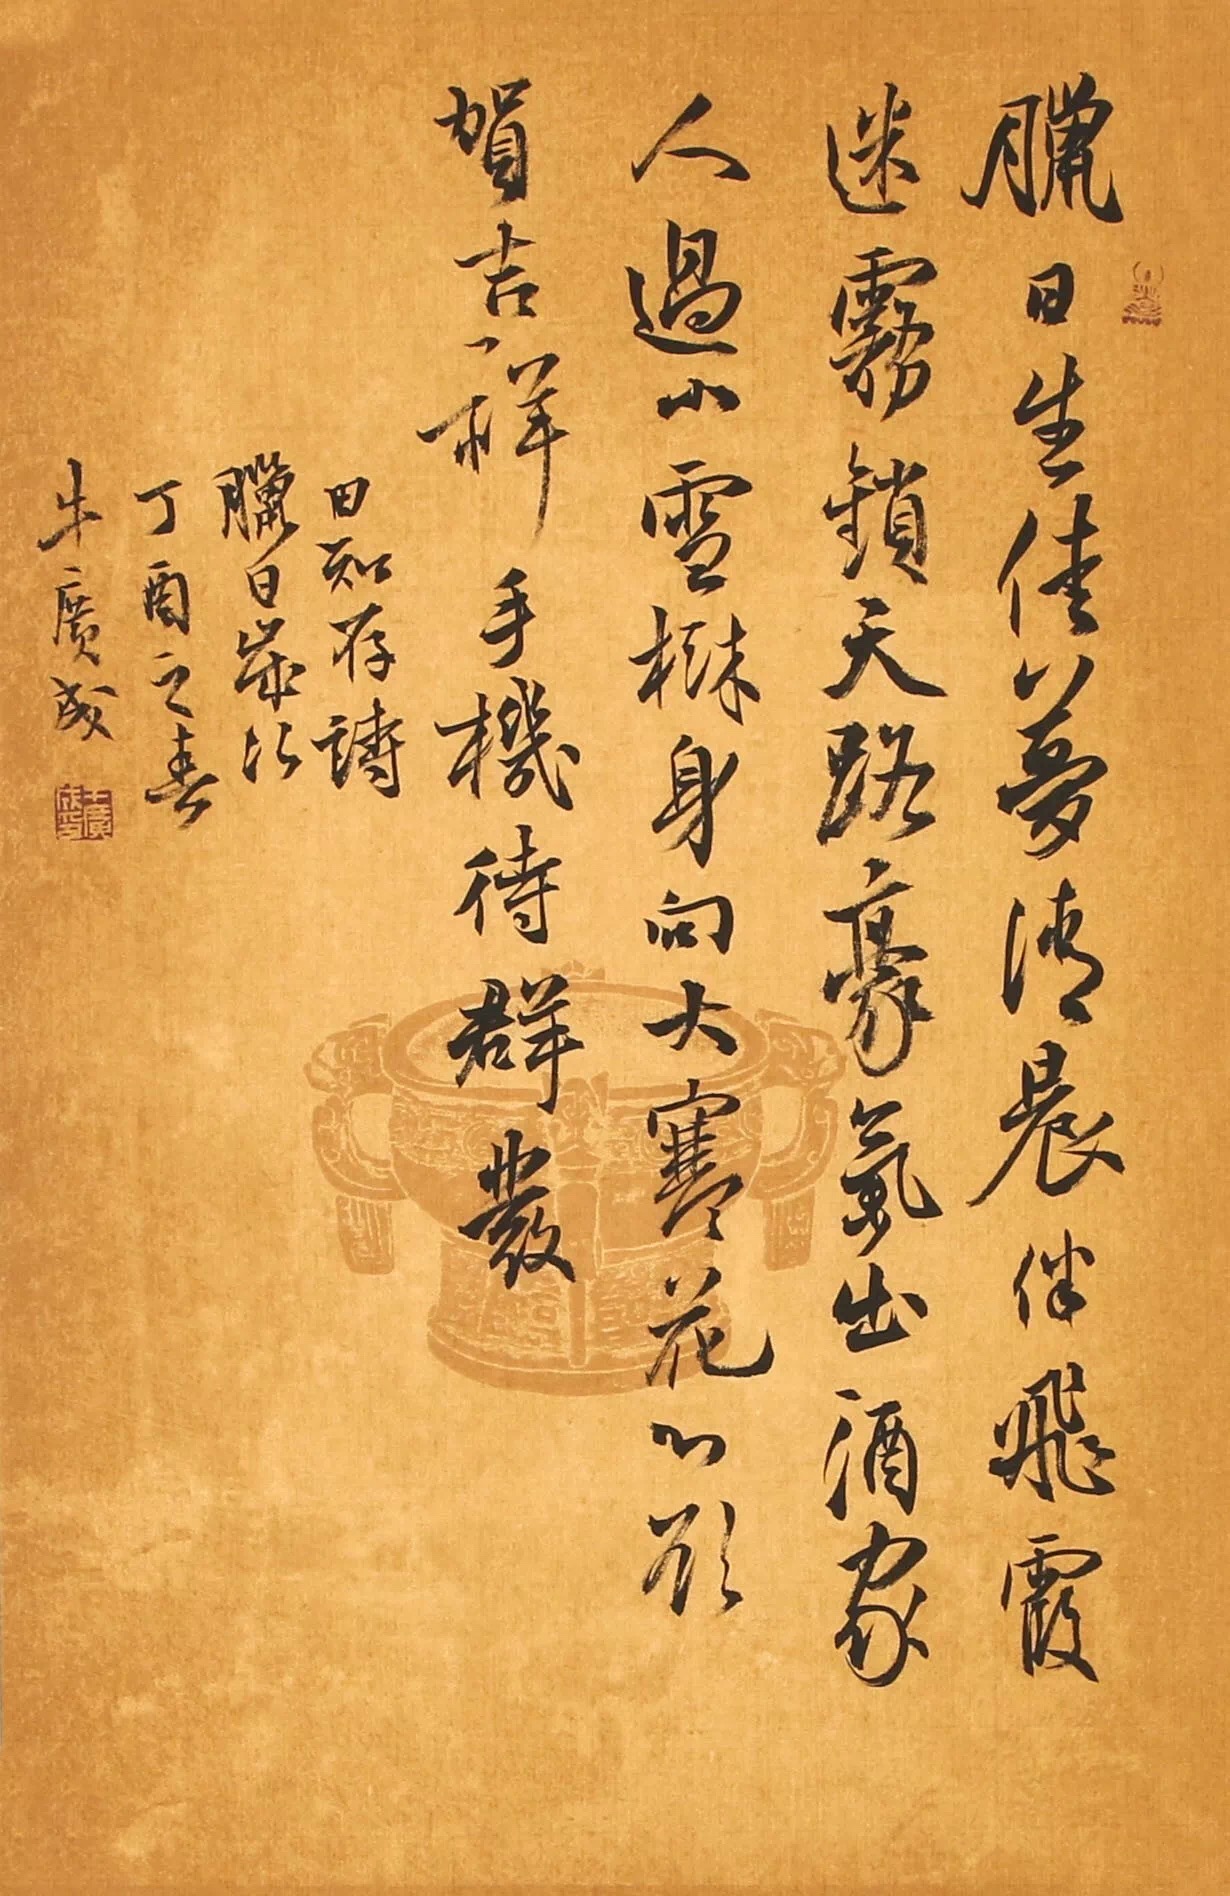 臘日生佳夢清晨伴飛霞
迷霧鎖天路豪氣出酒家
人過小雪身向大寒花心欲
賀吉祥手機待群發
田知存詩
臘日
丁酉之春
牛廣成